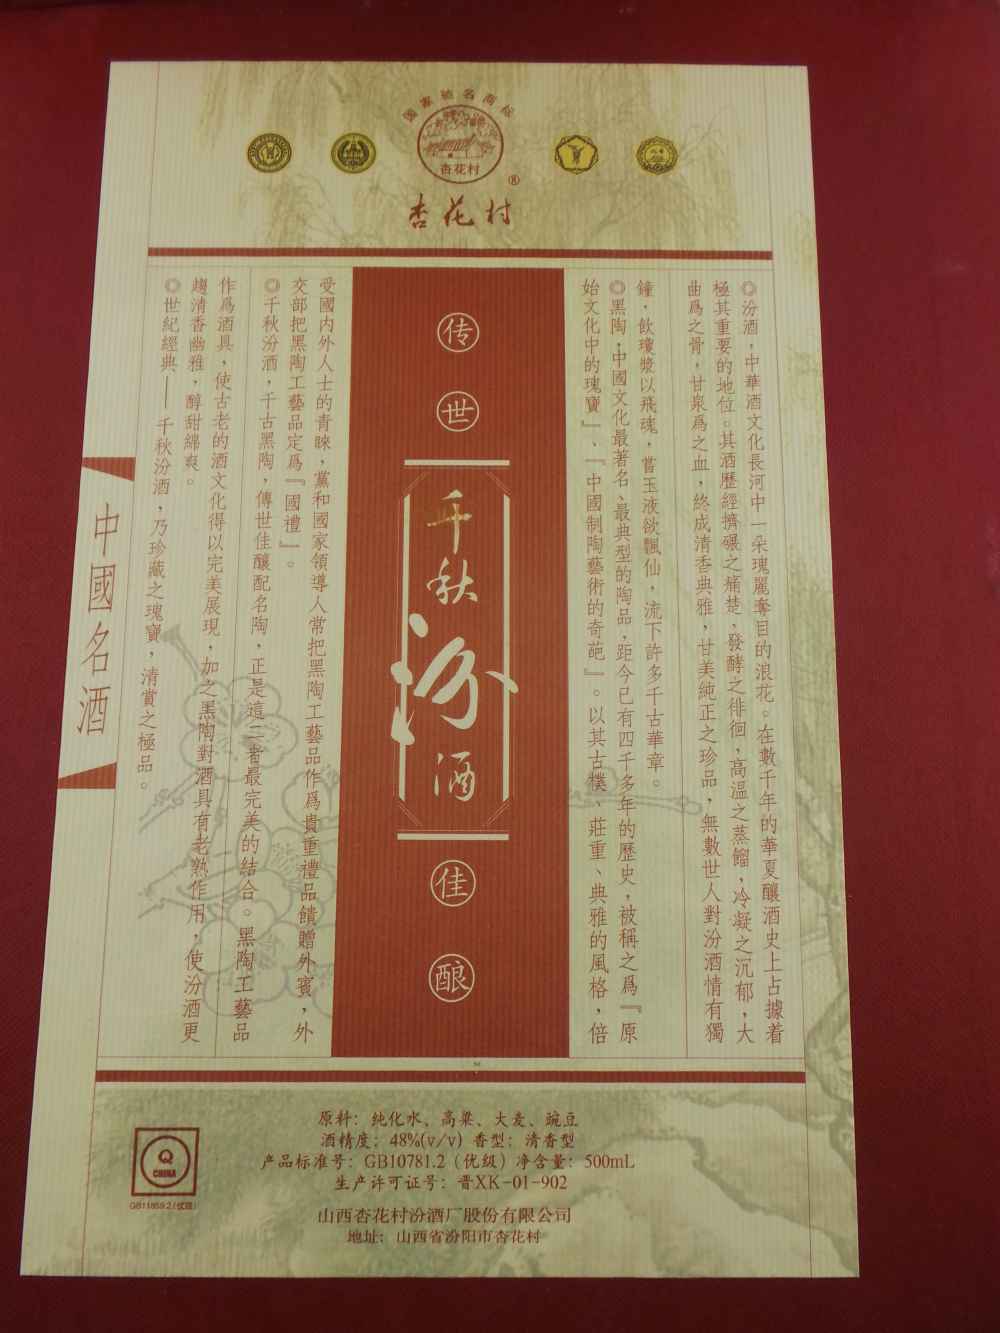 国家驰名商标
杏花村
®
杏花村
◎汾酒，中華酒文化長河中一朵瑰麗奪目的浪花。在數千年的華夏釀酒史上占據着
極其重要的地位。其酒歷經擠碾之痛楚、發酵之徘徊，高温之蒸餾，冷凝之沉郁，大
曲爲之骨，甘泉爲之血，終成清香典雅，甘美純正之珍品，無數世人對汾酒情有獨
鐘，飲瓊漿以飛魂，嘗玉液欲飄仙，流下許多千古華章。
◎黑陶，中國文化最著名、最典型的陶品，距今已有四千多年的歷史，被稱之爲『原
始文化中的瑰寶』、『中國制陶藝術的奇葩』。以其古樸、莊重、典雅的風格，倍
传世
千秋
汾
酒
佳酿
受國内外人士的青睞，黨和國家領導人常把黑陶工藝品作爲貴重禮品饋贈外賓，外
交部把黑陶工藝品定爲『國禮』。
◎千秋汾酒，千古黑陶，傳世佳釀配名陶，正是這二者最完美的結合。黑陶工藝品
作爲酒具，使古老的酒文化得以完美展現，加之黑陶對酒具有老熟作用，使汾酒更
趨清香幽雅，醇甜綿爽。
◎世紀經典——千秋汾酒，乃珍藏之瑰寶，清賞之極品。
中國名酒
原料：纯化水、高粱、大麦、豌豆
酒精度：48%(v/v) 香型：清香型
产品标准号：GB10781.2（优级）净含量：500mL
生产许可证号：晋XK-01-902
山西杏花村汾酒厂股份有限公司
地址：山西省汾阳市杏花村
Q
CHINA
GB11859.2(优级)